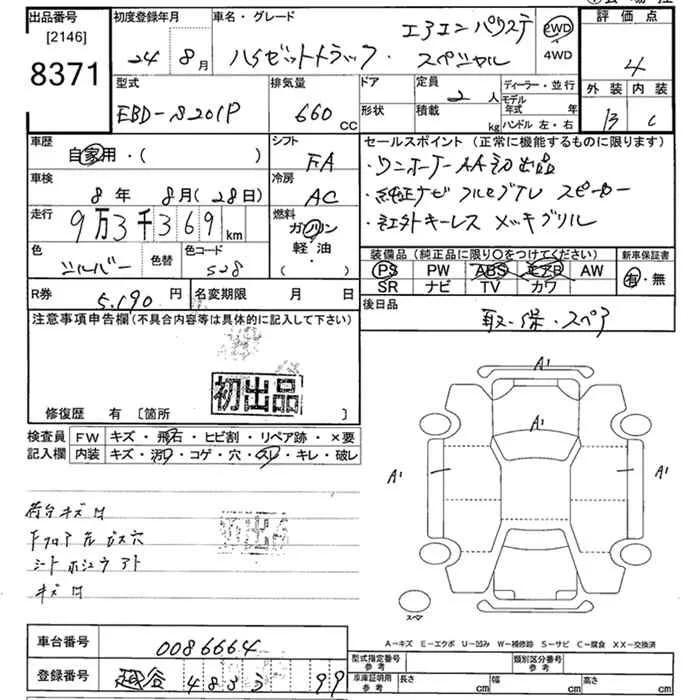 出品番号
[2146]
8371
初度登録年月
24年 8月
車名・グレード
エアコン パワステ
ハイゼットトラック・スペシャル
2WD
4WD
評価点
4
外装 内装
B C
型式
EBD-S201P
排気量
660 cc
ドア
形状
定員
2人
積載
kg
ディーラー・並行
モデル年式 年
ハンドル 左・右
車歴
自家用・( )
車検
8年 8月(28日)
走行
9万3千369km
色
シルバー
色替
色コード
S28
シフト
FA
冷房
AC
燃料
ガソリン
軽・油
( )
セールスポイント(正常に機能するものに限ります)
・ワンオーナーAA初出品
・純正ナビ フルセグTV スピーカー
・社外キーレス メッキグリル
装備品(純正品に限り○をつけてください)
PS PW ABS エアB AW
SR ナビ TV カワ
新車保証書
有・無
R券
5,190円
名変期限 月 日
後日品
取・保・スペア
注意事項申告欄(不具合内容等は具体的に記入して下さい)
初出品
修復歴 有 [箇所 ]
検査員記入欄
FW キズ・飛石・ヒビ割・リペア跡・×要
内装 キズ・汚レ・コゲ・穴・スレ・キレ・破レ
荷台キズ凹
Fフロア左ビス穴
シートホシュウアト
キズ凹
初出品
A1
A1
A1
A1
スペア
A-キズ E-エクボ U-凹み W-補修跡 S-サビ C-腐食 XX-交換済
車台番号
0086664
登録番号
越谷 4833 99
型式指定番号 参考
類別区分番号 参考
車庫証明用 参考
長さ cm
幅 cm
高さ cm